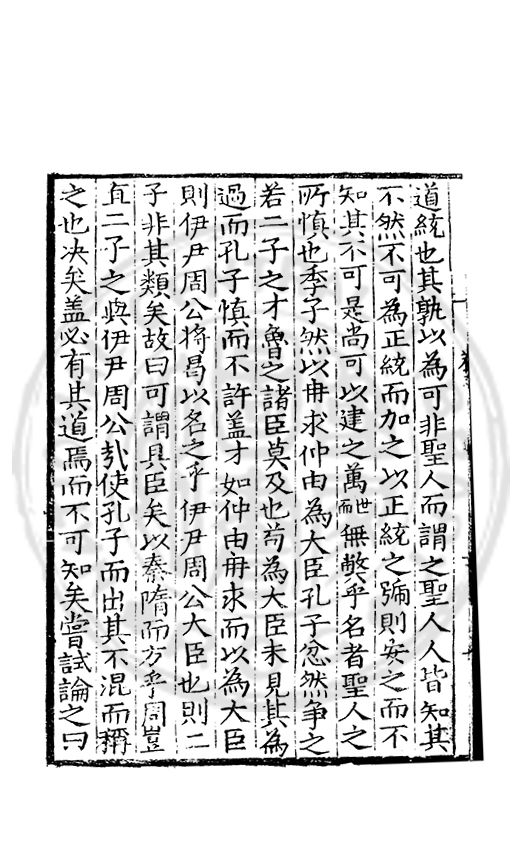 道統也其孰以為可非聖人而謂之聖人人皆知其
不然不可為正統而加之以正統之號則安之而不
知其不可是尚可以建之萬世而無弊乎名者聖人之
所慎也季子然以冉求仲由為大臣孔子忿然争之
若二子之才魯之諸臣莫及也茍為大臣未見其為
過而孔子慎而不許盖才如仲由冉求而以為大臣
則伊尹周公將曷以名之乎伊尹周公大臣也則二
子非其類矣故曰可謂具臣矣以秦隋而方乎周豈
直二子之與伊尹周公㢤使孔子而出其不混而稱
之也决矣盖必有其道焉而不可知矣嘗試論之曰